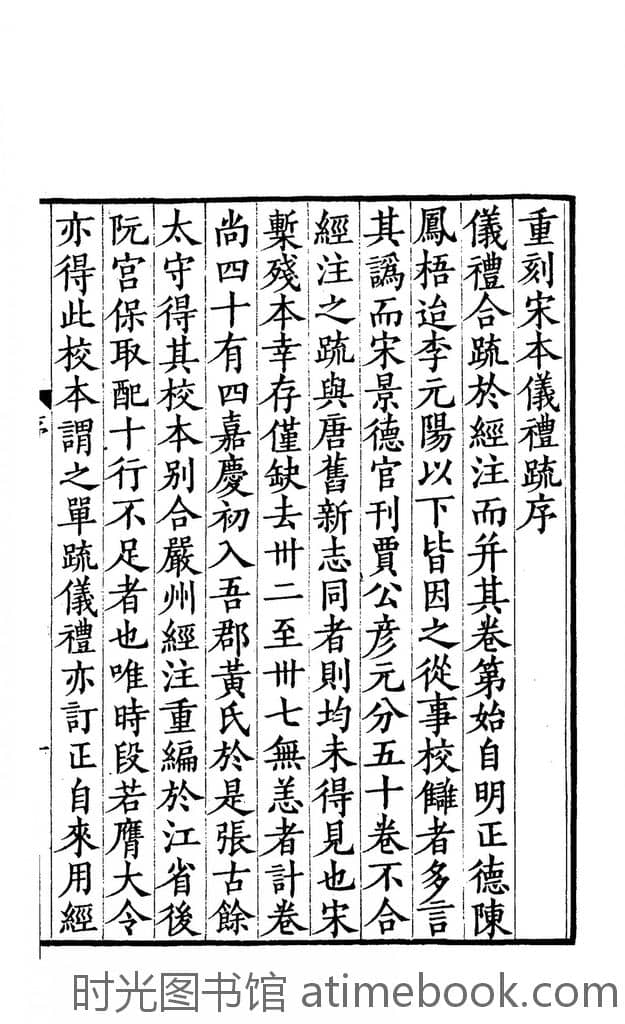 重刻宋本儀禮疏序
儀禮合疏於經注而并其卷第始自明正德陳
鳳梧迨李元陽以下皆因之從事校讎者多言
其譌而宋景德官刊賈公彥元分五十卷不合
經注之疏與唐舊新志同者則均未得見也宋
槧殘本幸存僅缺去卅二至卅七無恙者計卷
尚四十有四嘉慶初入吾郡黃氏於是張古餘
太守得其校本別合嚴州經注重編於江省後
阮宮保取配十行不足者也唯時段若膺大令
亦得此校本謂之單疏儀禮亦訂正自來用經
序
一
时光图书馆 atimebook.com